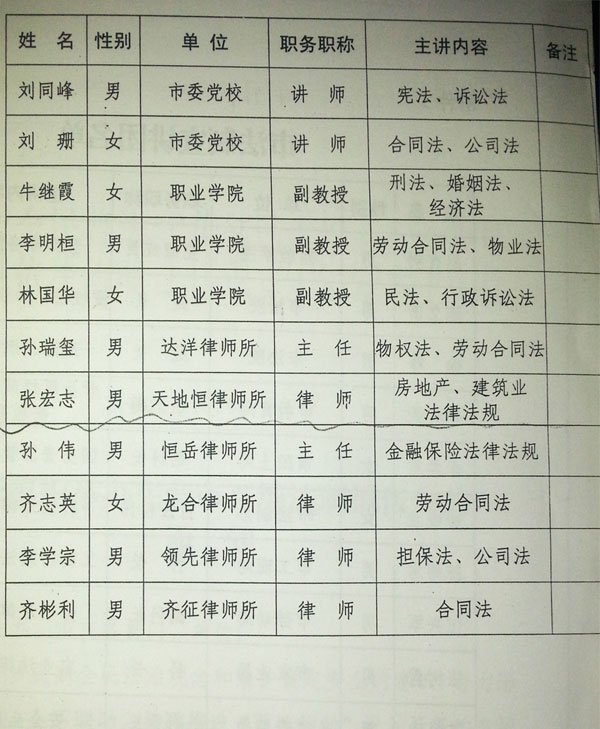 姓 名 性别 单 位 职务职称 主讲内容 备注
刘同峰 男 市委党校 讲 师 宪法、诉讼法
刘 珊 女 市委党校 讲 师 合同法、公司法
牛继霞 女 职业学院 副教授 刑法、婚姻法、
经济法
李明桓 男 职业学院 副教授 劳动合同法、物业法
林国华 女 职业学院 副教授 民法、行政诉讼法
孙瑞玺 男 达洋律师所 主 任 物权法、劳动合同法
张宏志 男 天地恒律师所 律 师 房地产、建筑业
法律法规
孙 伟 男 恒岳律师所 主 任 金融保险法律法规
齐志英 女 龙合律师所 律 师 劳动合同法
李学宗 男 领先律师所 律 师 担保法、公司法
齐彬利 男 齐征律师所 律 师 合同法